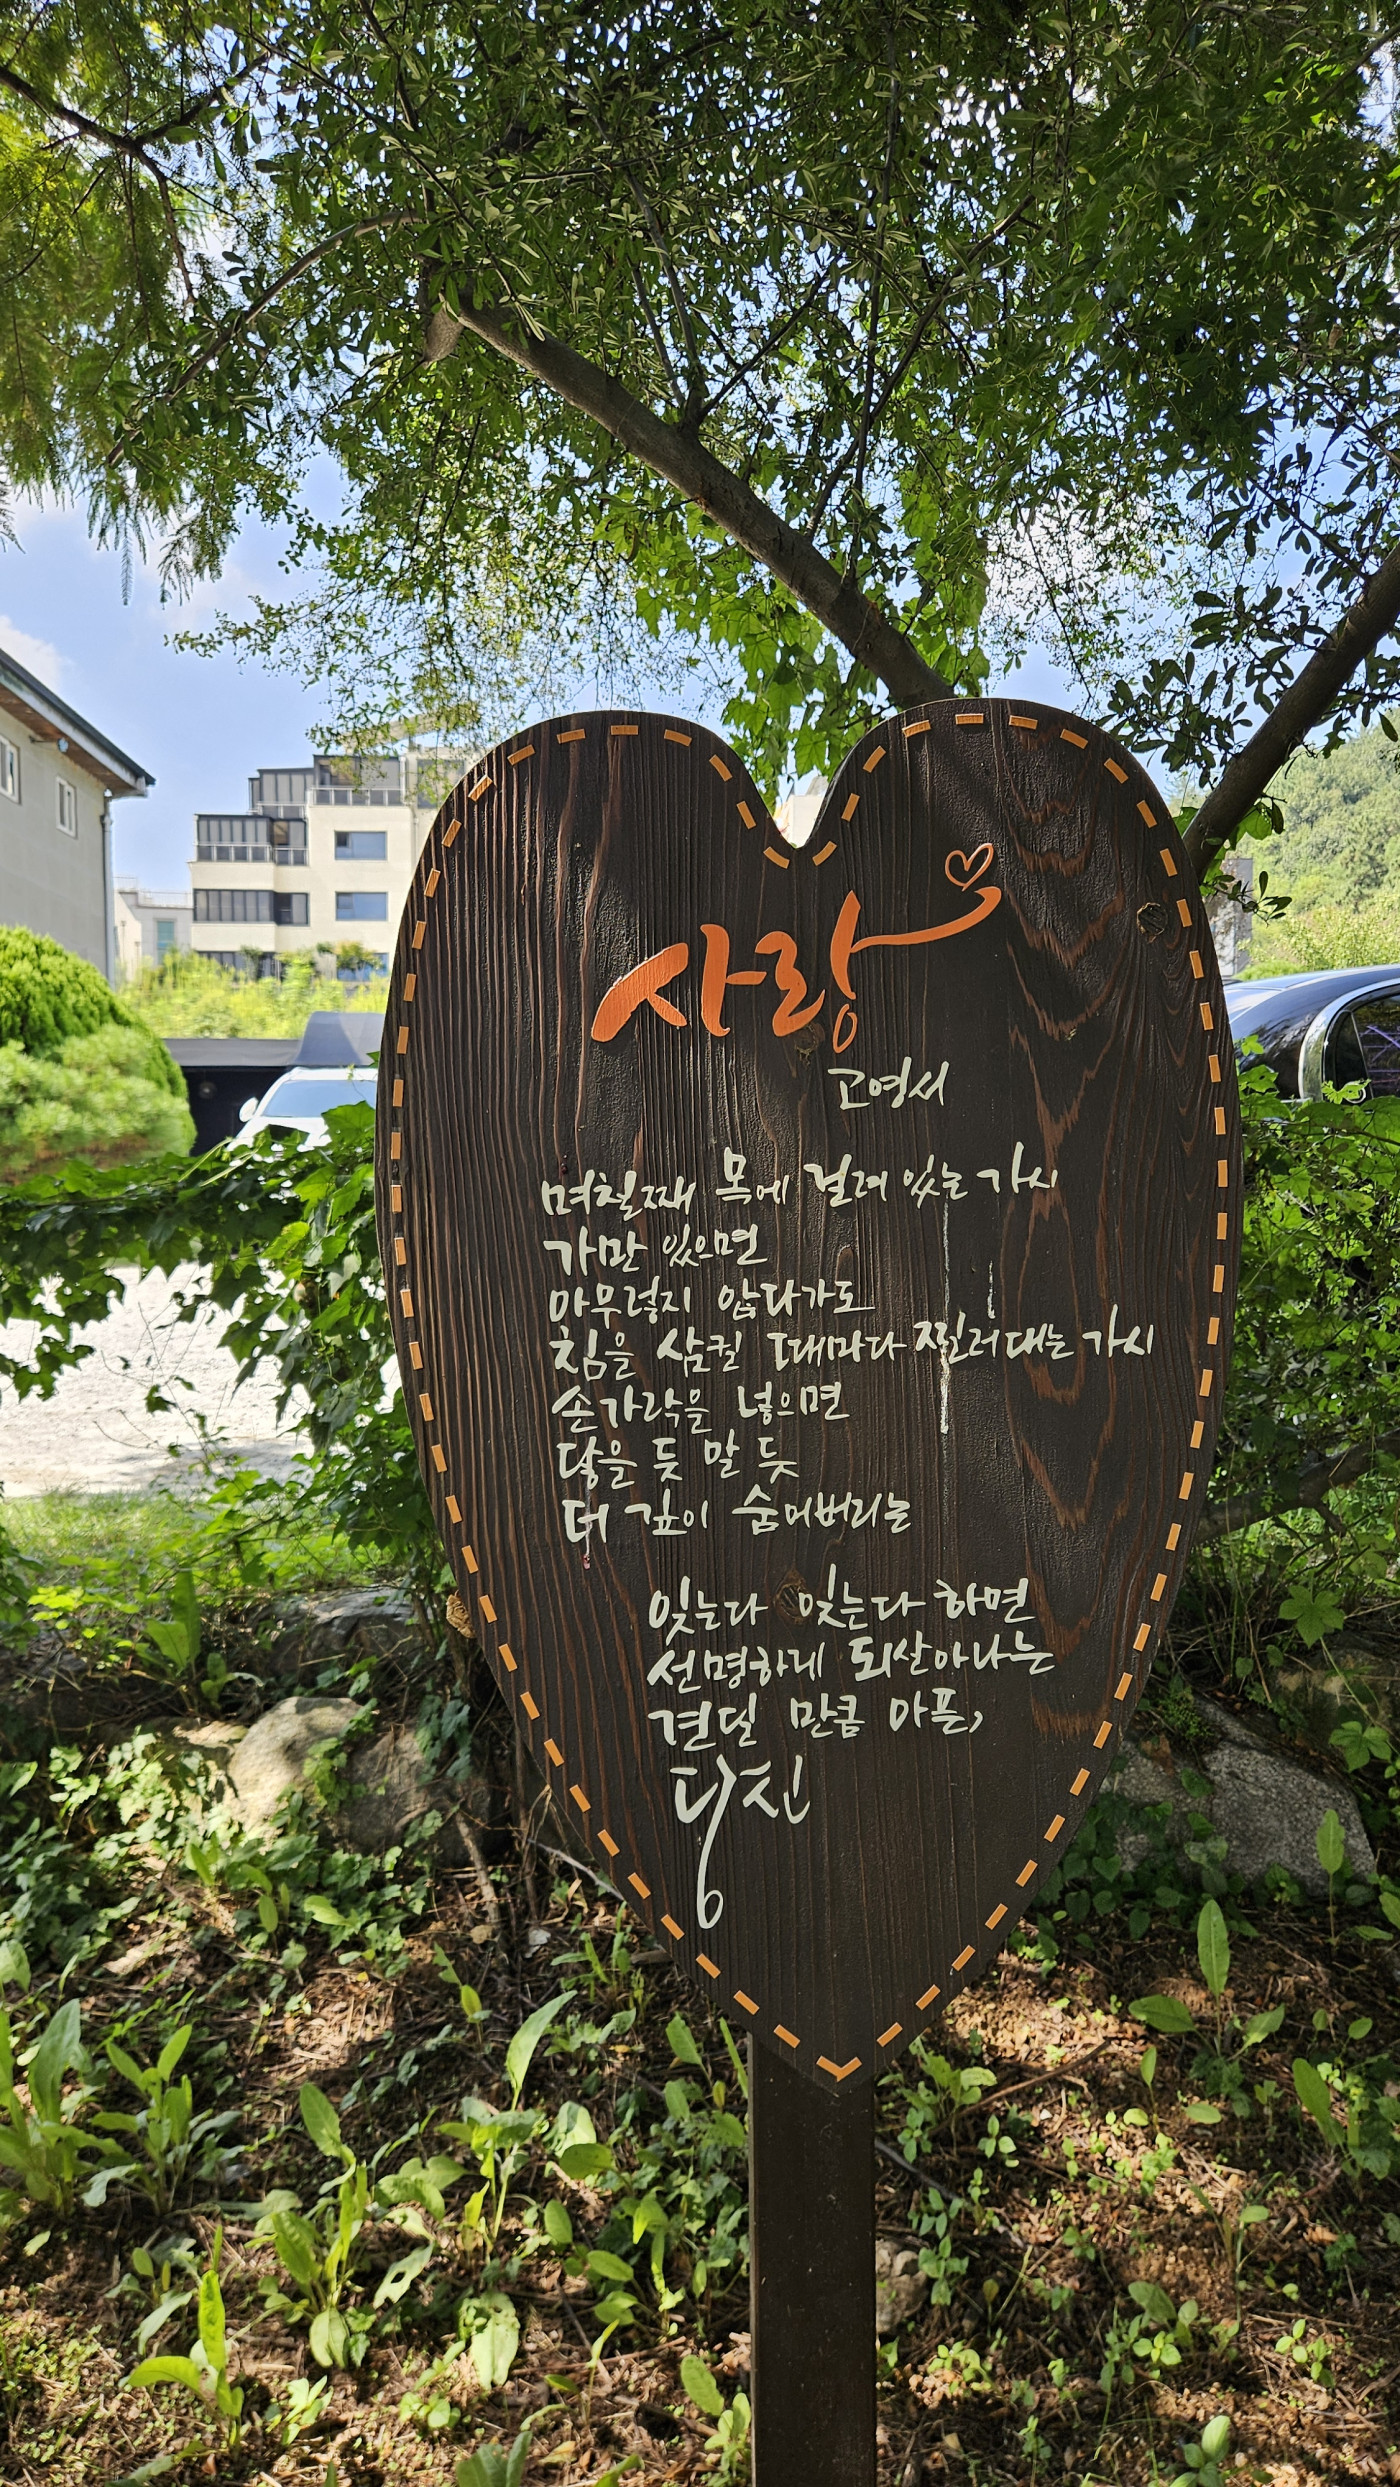 사랑
고영서
며칠째 목에 걸려 있는 가시
가만 있으면
아무렇지 않다가도
침을 삼킬 때마다 찔러대는 가시
손가락을 넣으면
닿을 듯 말 듯
더 깊이 숨어버리는
잊는다 잊는다 하면
선명하게 되살아나는
견딜 만큼 아픈,
당신